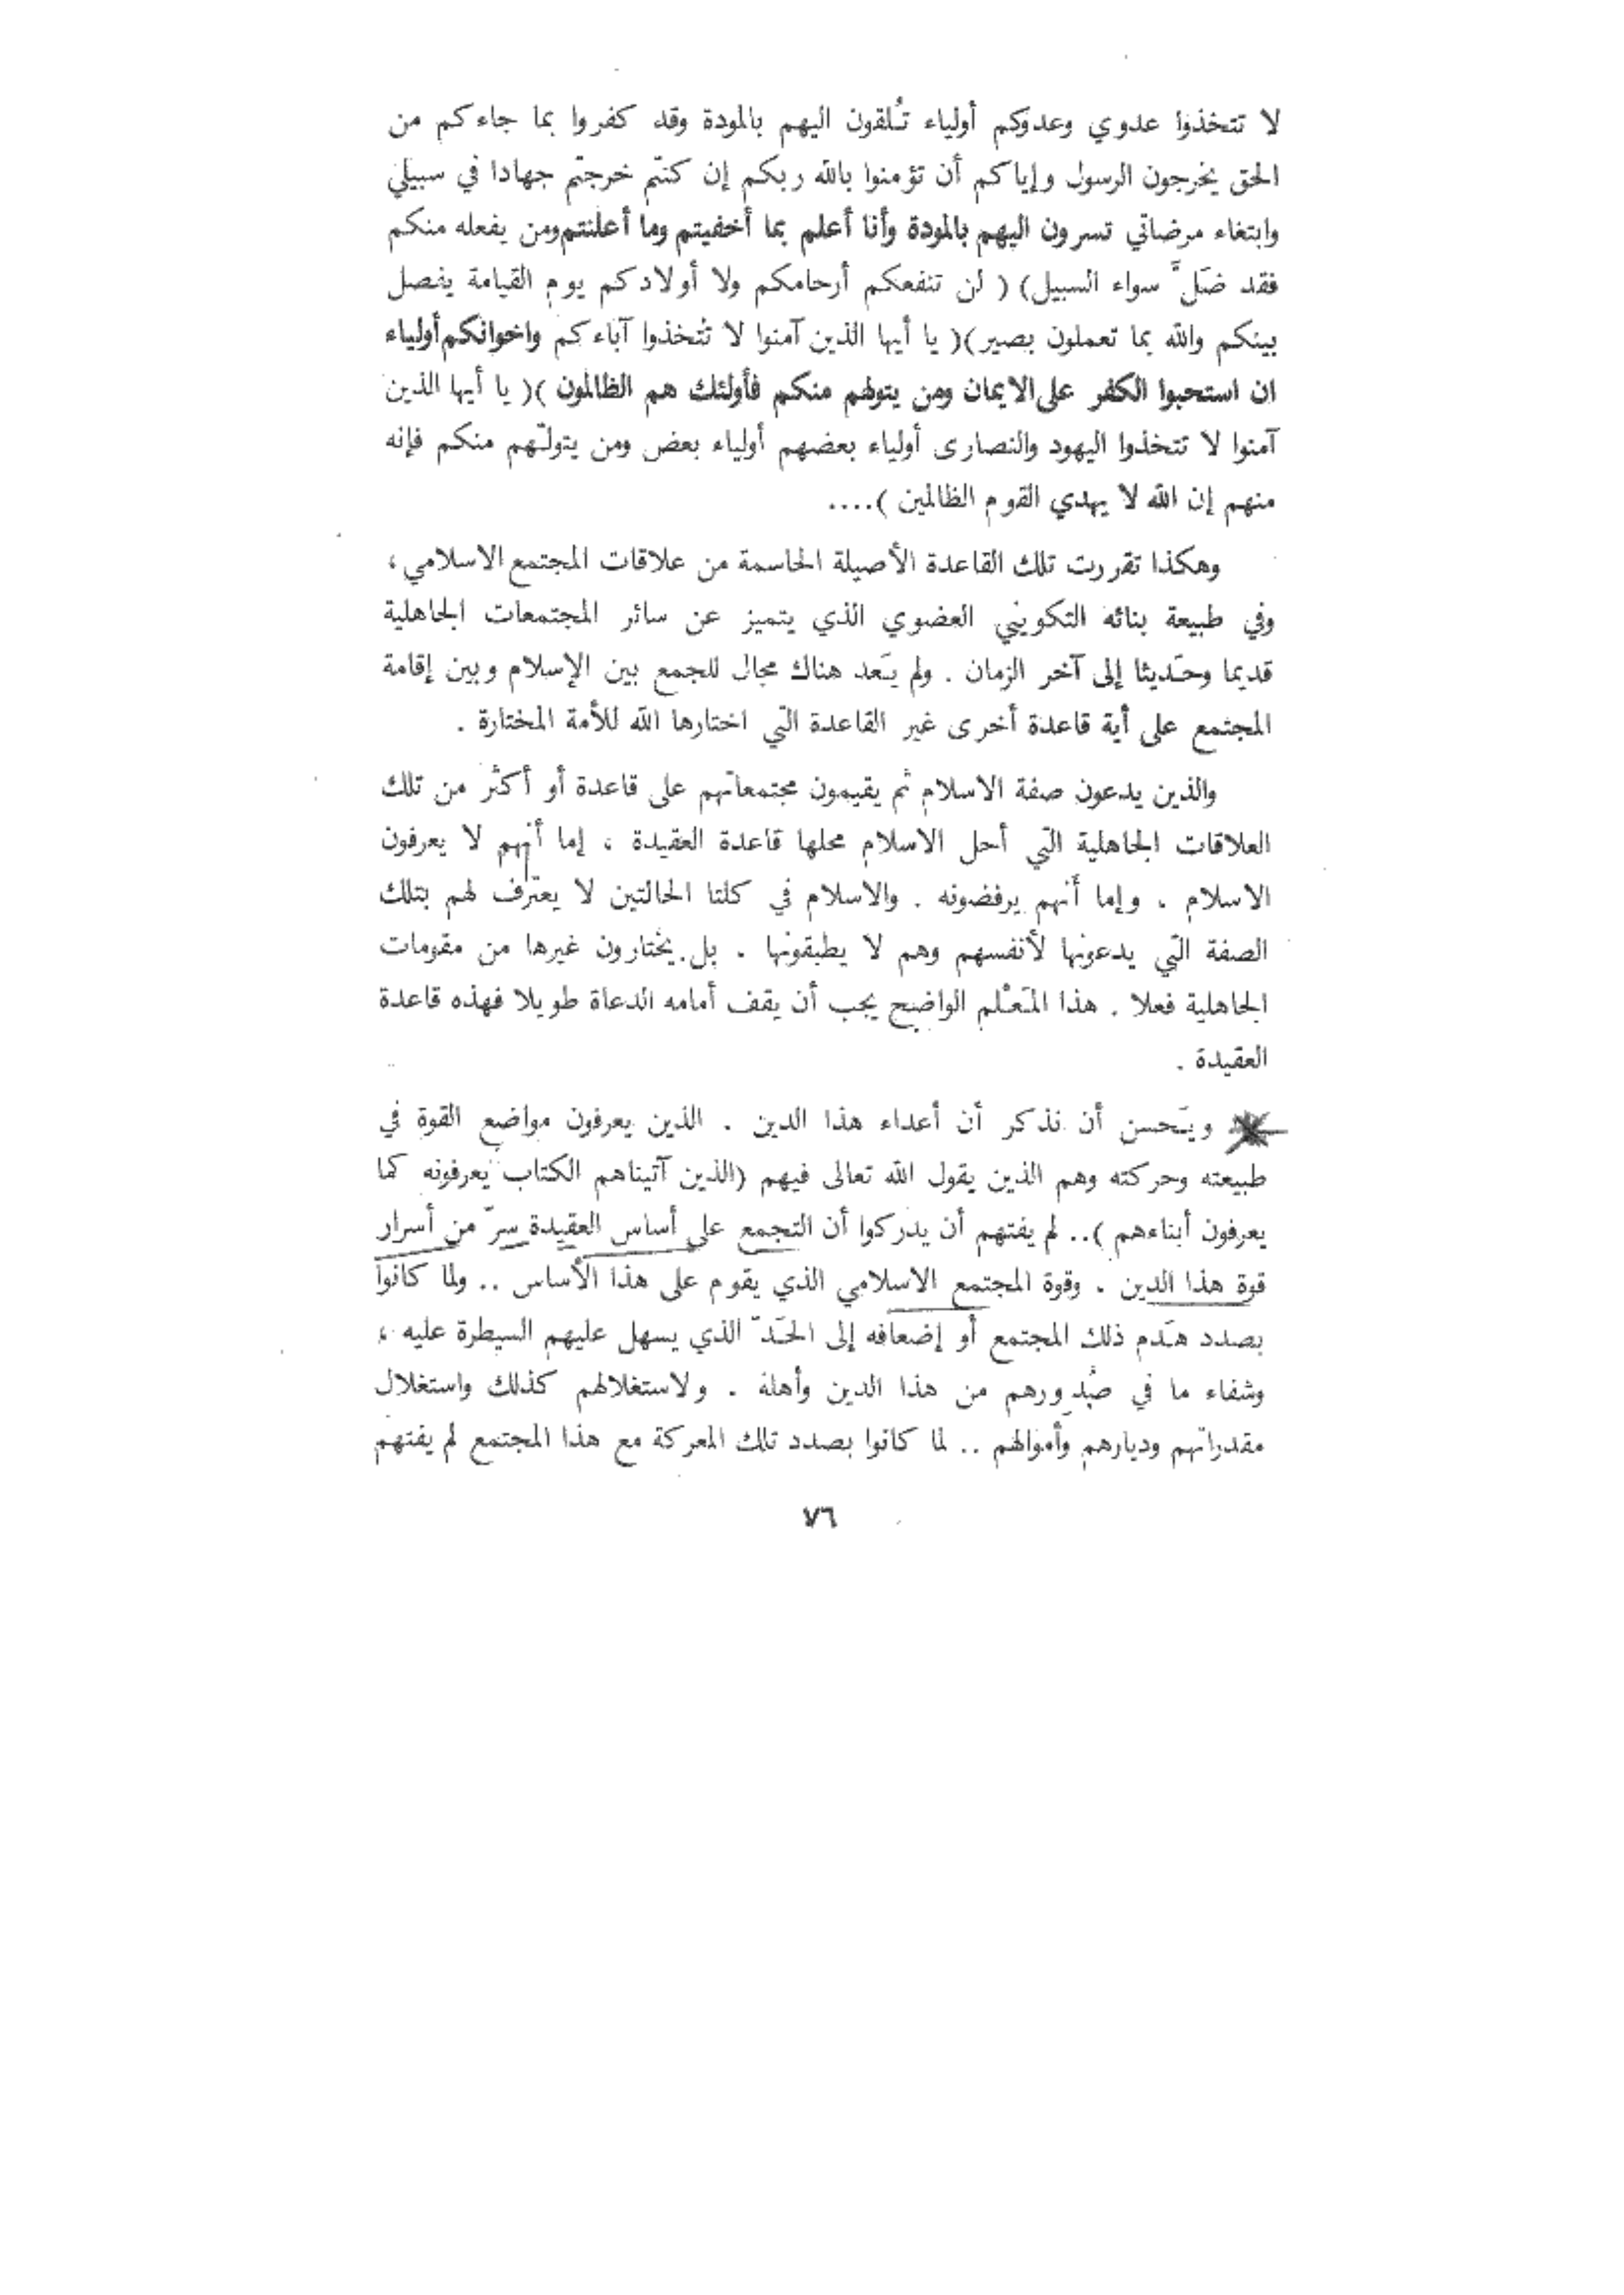 لا تتخذوا عدوي وعدوكم أولياء تُلقون اليهم بالمودة وقد كفروا بما جاءكم من
الحق يخرجون الرسول وإياكم أن تؤمنوا بالله ربكم إن كنتم خرجتم جهادا في سبيلي
وابتغاء مرضاتي تسرون اليهم بالمودة وأنا أعلم بما أخفيتم وما أعلنتم ومن يفعله منكم
فقد ضَلَّ سواء السبيل) ( لن تنفعكم أرحامكم ولا أولادكم يوم القيامة يفصل
بينكم والله بما تعملون بصير)( يا أيها الذين آمنوا لا تتخذوا آباءكم واخوانكم أولياء
ان استحبوا الكفر على الايمان ومن يتولهم منكم فأولئك هم الظالمون )( يا أيها الذين
آمنوا لا تتخذوا اليهود والنصارى أولياء بعضهم أولياء بعض ومن يتولّهم منكم فإنه
منهم إن الله لا يهدي القوم الظالمين )....
وهكذا تقررت تلك القاعدة الأصيلة الحاسمة من علاقات المجتمع الاسلامي ،
وفي طبيعة بنائه التكويني العضوي الذي يتميز عن سائر المجتمعات الجاهلية
قديما وحَديثا إلى آخر الزمان . ولم يَعد هناك مجال للجمع بين الإسلام وبين إقامة
المجتمع على أية قاعدة أخرى غير القاعدة التي اختارها الله للأمة المختارة .
والذين يدعون صفة الاسلام ثم يقيمون مجتمعاتهم على قاعدة أو أكثر من تلك
العلاقات الجاهلية التي أحل الاسلام محلها قاعدة العقيدة ، إما أنهم لا يعرفون
الاسلام . وإما أنهم يرفضونه . والاسلام في كلتا الحالتين لا يعترف لهم بتلك
الصفة التي يدعونها لأنفسهم وهم لا يطبقونها . بل يختارون غيرها من مقومات
الجاهلية فعلا . هذا المَعْلم الواضح يجب أن يقف أمامه الدعاة طويلا فهذه قاعدة
العقيدة .
ويَحسن أن نذكر أن أعداء هذا الدين . الذين يعرفون مواضع القوة في
طبيعته وحركته وهم الذين يقول الله تعالى فيهم (الذين آتيناهم الكتاب يعرفونه كما
يعرفون أبناءهم ).. لم يفتهم أن يدركوا أن التجمع على أساس العقيدة سرّ من أسرار
قوة هذا الدين . وقوة المجتمع الاسلامي الذي يقوم على هذا الأساس .. ولما كانوا
بصدد هَدم ذلك المجتمع أو إضعافه إلى الحَدّ الذي يسهل عليهم السيطرة عليه ،
وشفاء ما في صُدورهم من هذا الدين وأهله . ولاستغلالهم كذلك واستغلال
مقدراتهم وديارهم وأموالهم .. لما كانوا بصدد تلك المعركة مع هذا المجتمع لم يفتهم
٧٦